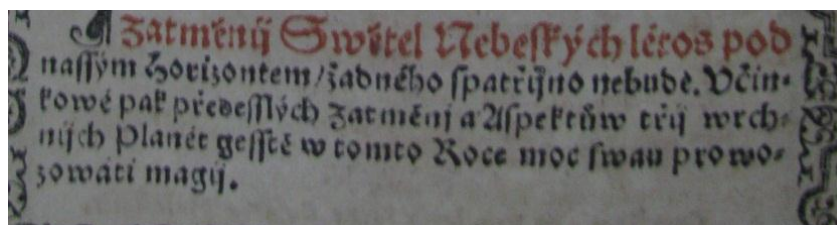 ¶ Zatměnij Swětel Nebeských létos pod
nassým Horizontem/ žadného spatřijno nebude. Včin-
kowé pak předesslých Zatměnj a Aspektůw třij wrch-
nijch Planét gesstě w tomto Roce moc swau prowo-
zowati magij.